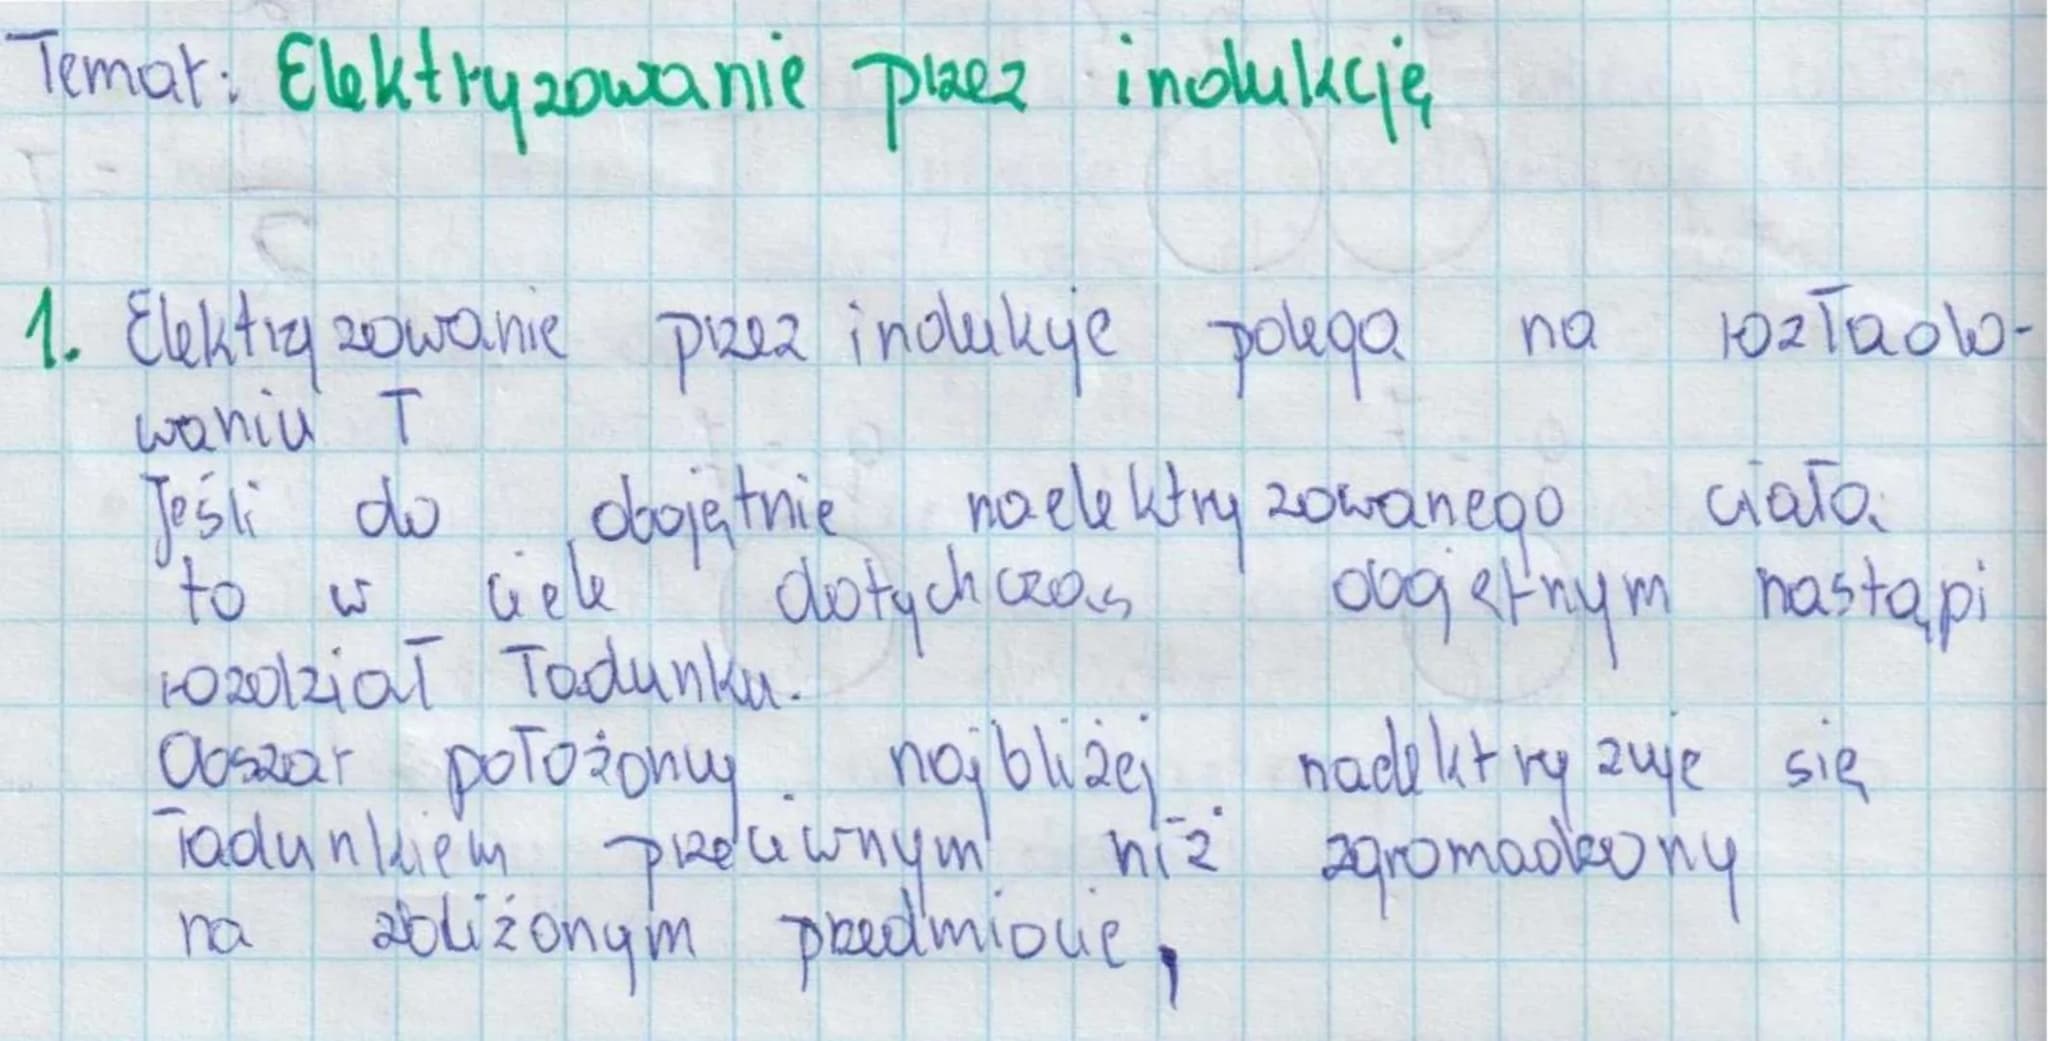 Temat: Elektryzowanie przez indukcję
1. Elektryzowanie przez indukcje polega na rozładо-
waniu T
Jeśli do obojętnie naelektryzowanego ciała
to w ciele dotychczas obojętnym nastąpi
rozdział ładunku.
Obszar położony najbliżej naelektryzuje się
ładunkiem przeciwnym niż zgromadzony
na zbliżonym przedmiocie,